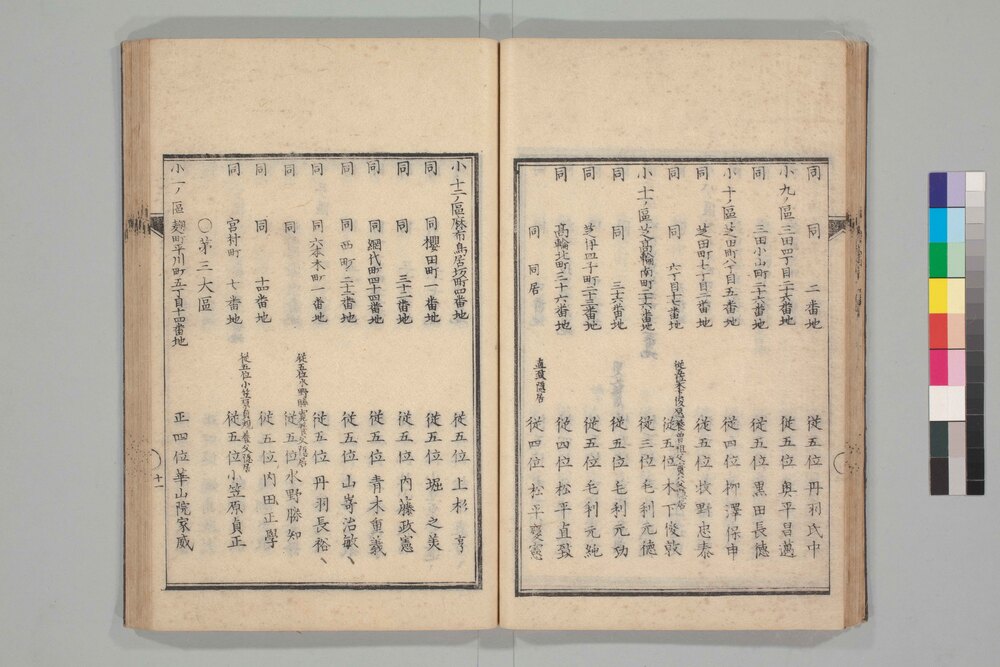 同 同 二番地 従五位丹羽氏中
小九ノ區三田四丁目二十六番地 従五位奥平昌邁
同 三田小山町二十六番地 従五位黒田長徳
小十ノ區芝田町八丁目五番地 従四位柳澤保申
同 芝田町七丁目一番地 従五位牧野忠泰
同 六丁目七番地 従五位木下俊敦
小十一ノ區芝高輪南町二十六番地 従三位毛利元徳
同 同 三十六番地 従五位毛利元功
同 芝伊皿子町二十三番地 従五位毛利元純
同 高輪北町三十六番地 従四位松平直致
同 同居 直致隠居 従四位松平慶憲
小十二ノ區麻布鳥居坂町四番地 従五位上杉
同 同櫻田町一番地 従五位堀之美
同 同 三十二番地 従五位内藤政憲
同 同網代町四十四番地 従五位青木重義
同 同西町二十二番地 従五位山嵜治敏
同 同六本木町一番地 従五位丹羽長裕
同 従五位水野勝知
同 同 十四番地 従五位内田正學
同 宮村町 七番地 従五位小笠原貞正
〇第三大區
小一ノ區麹町平川町五丁目十四番地 正四位華山院家威
十一